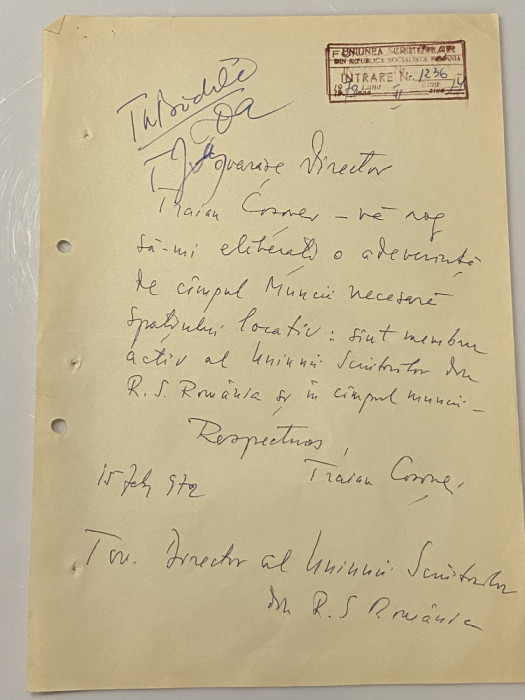 UNIUNEA SCRIITORILOR
DIN REPUBLICA SOCIALISTA ROMÂNIA
INTRARE Nr. 1236
1972 Luna II Ziua
Da
Tovarășe Director
Traian Coșovei – vă rog
să-mi eliberați o adeverință
de cîmpul Muncii necesară
spațiului locativ: sînt membru
activ al Uniunii Scriitorilor din
R. S. România și în cîmpul muncii –
Respectuos,
Traian Coșovei
15 Feb 972
Tov. Director al Uniunii Scriitorilor
din R. S România